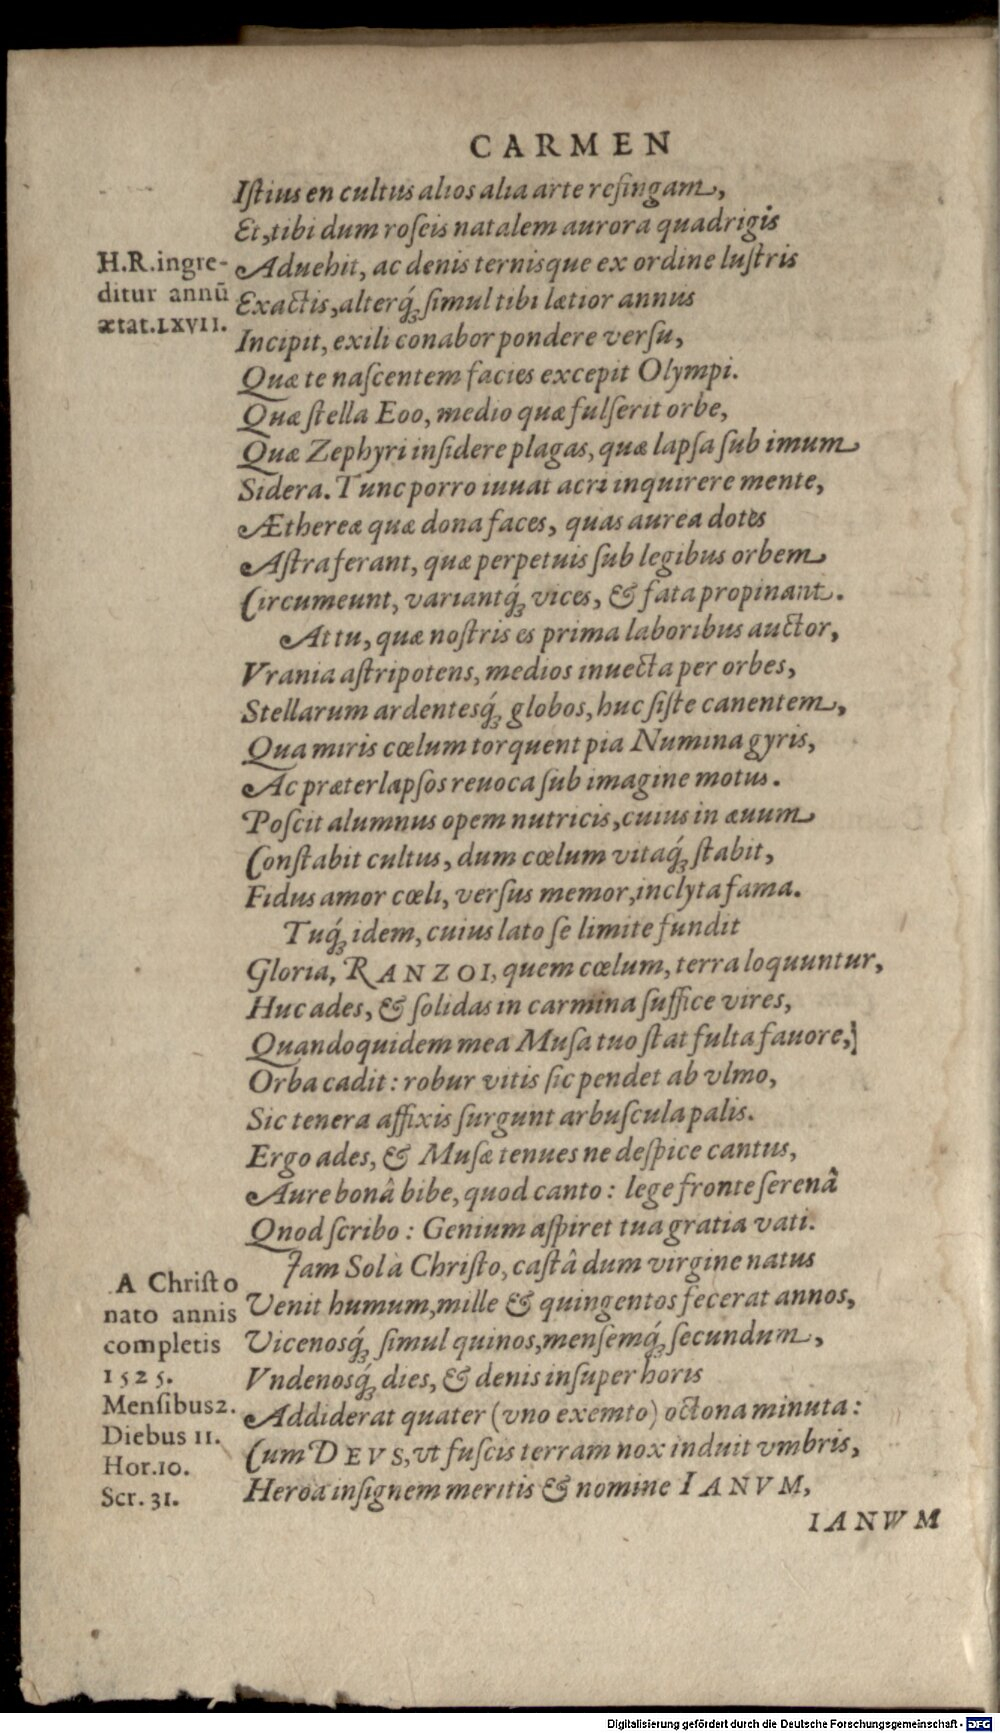 CARMEN
Iſtius en cultus alios alia arte refingam,
Et, tibi dum roſeis natalem aurora quadrigis
H.R.ingre-
ditur annū
ætat.LXVII.
Aduehit, ac denis ternisque ex ordine luſtris
Exactis, alterq́ꝫ ſimul tibi lætior annus
Incipit, exili conabor pondere verſu,
Quæ te naſcentem facies excepit Olympi.
Quæ ſtella Eoo, medio quæ fulſerit orbe,
Quæ Zephyri inſidere plagas, quæ lapſa ſub imum
Sidera. Tunc porro iuuat acri inquirere mente,
Æthereæ quæ dona faces, quas aurea dotes
Aſtra ferant, quæ perpetuis ſub legibus orbem
Circumeunt, variantq́ꝫ vices, & fata propinant.
At tu, quæ noſtris es prima laboribus auctor,
Vrania aſtripotens, medios inuecta per orbes,
Stellarum ardentesq́ꝫ globos, huc ſiſte canentem,
Qua miris cœlum torquent pia Numina gyris,
Ac præterlapſos reuoca ſub imagine motus.
Poſcit alumnus opem nutricis, cuius in æuum
Conſtabit cultus, dum cœlum vitaq́ꝫ ſtabit,
Fidus amor cœli, verſus memor, inclyta fama.
Tuq́ꝫ idem, cuius lato ſe limite fundit
Gloria, RANZOI, quem cœlum, terra loquuntur,
Huc ades, & ſolidas in carmina ſuffice vires,
Quandoquidem mea Muſa tuo ſtat fulta fauore,
Orba cadit: robur vitis ſic pendet ab vlmo,
Sic tenera affixis ſurgunt arbuſcula palis.
Ergo ades, & Muſæ tenues ne deſpice cantus,
Aure bonâ bibe, quod canto: lege fronte ſerenâ
Qnod ſcribo: Genium aſpiret tua gratia vati.
Jam Sol à Chriſto, caſtâ dum virgine natus
A Chriſto
nato annis
completis
1525.
Menſibus 2.
Diebus 11.
Hor.10.
Scr. 31.
Venit humum, mille & quingentos fecerat annos,
Vicenosq́ꝫ ſimul quinos, menſemq́ꝫ ſecundum,
Vndenosq́ꝫ dies, & denis inſuper horis
Addiderat quater (vno exemto) octona minuta:
Cum DEVS, vt fuſcis terram nox induit vmbris,
Heroa inſignem meritis & nomine IANVM,
IANWM
Digitalisierung gefördert durch die Deutsche Forschungsgemeinschaft - DFG